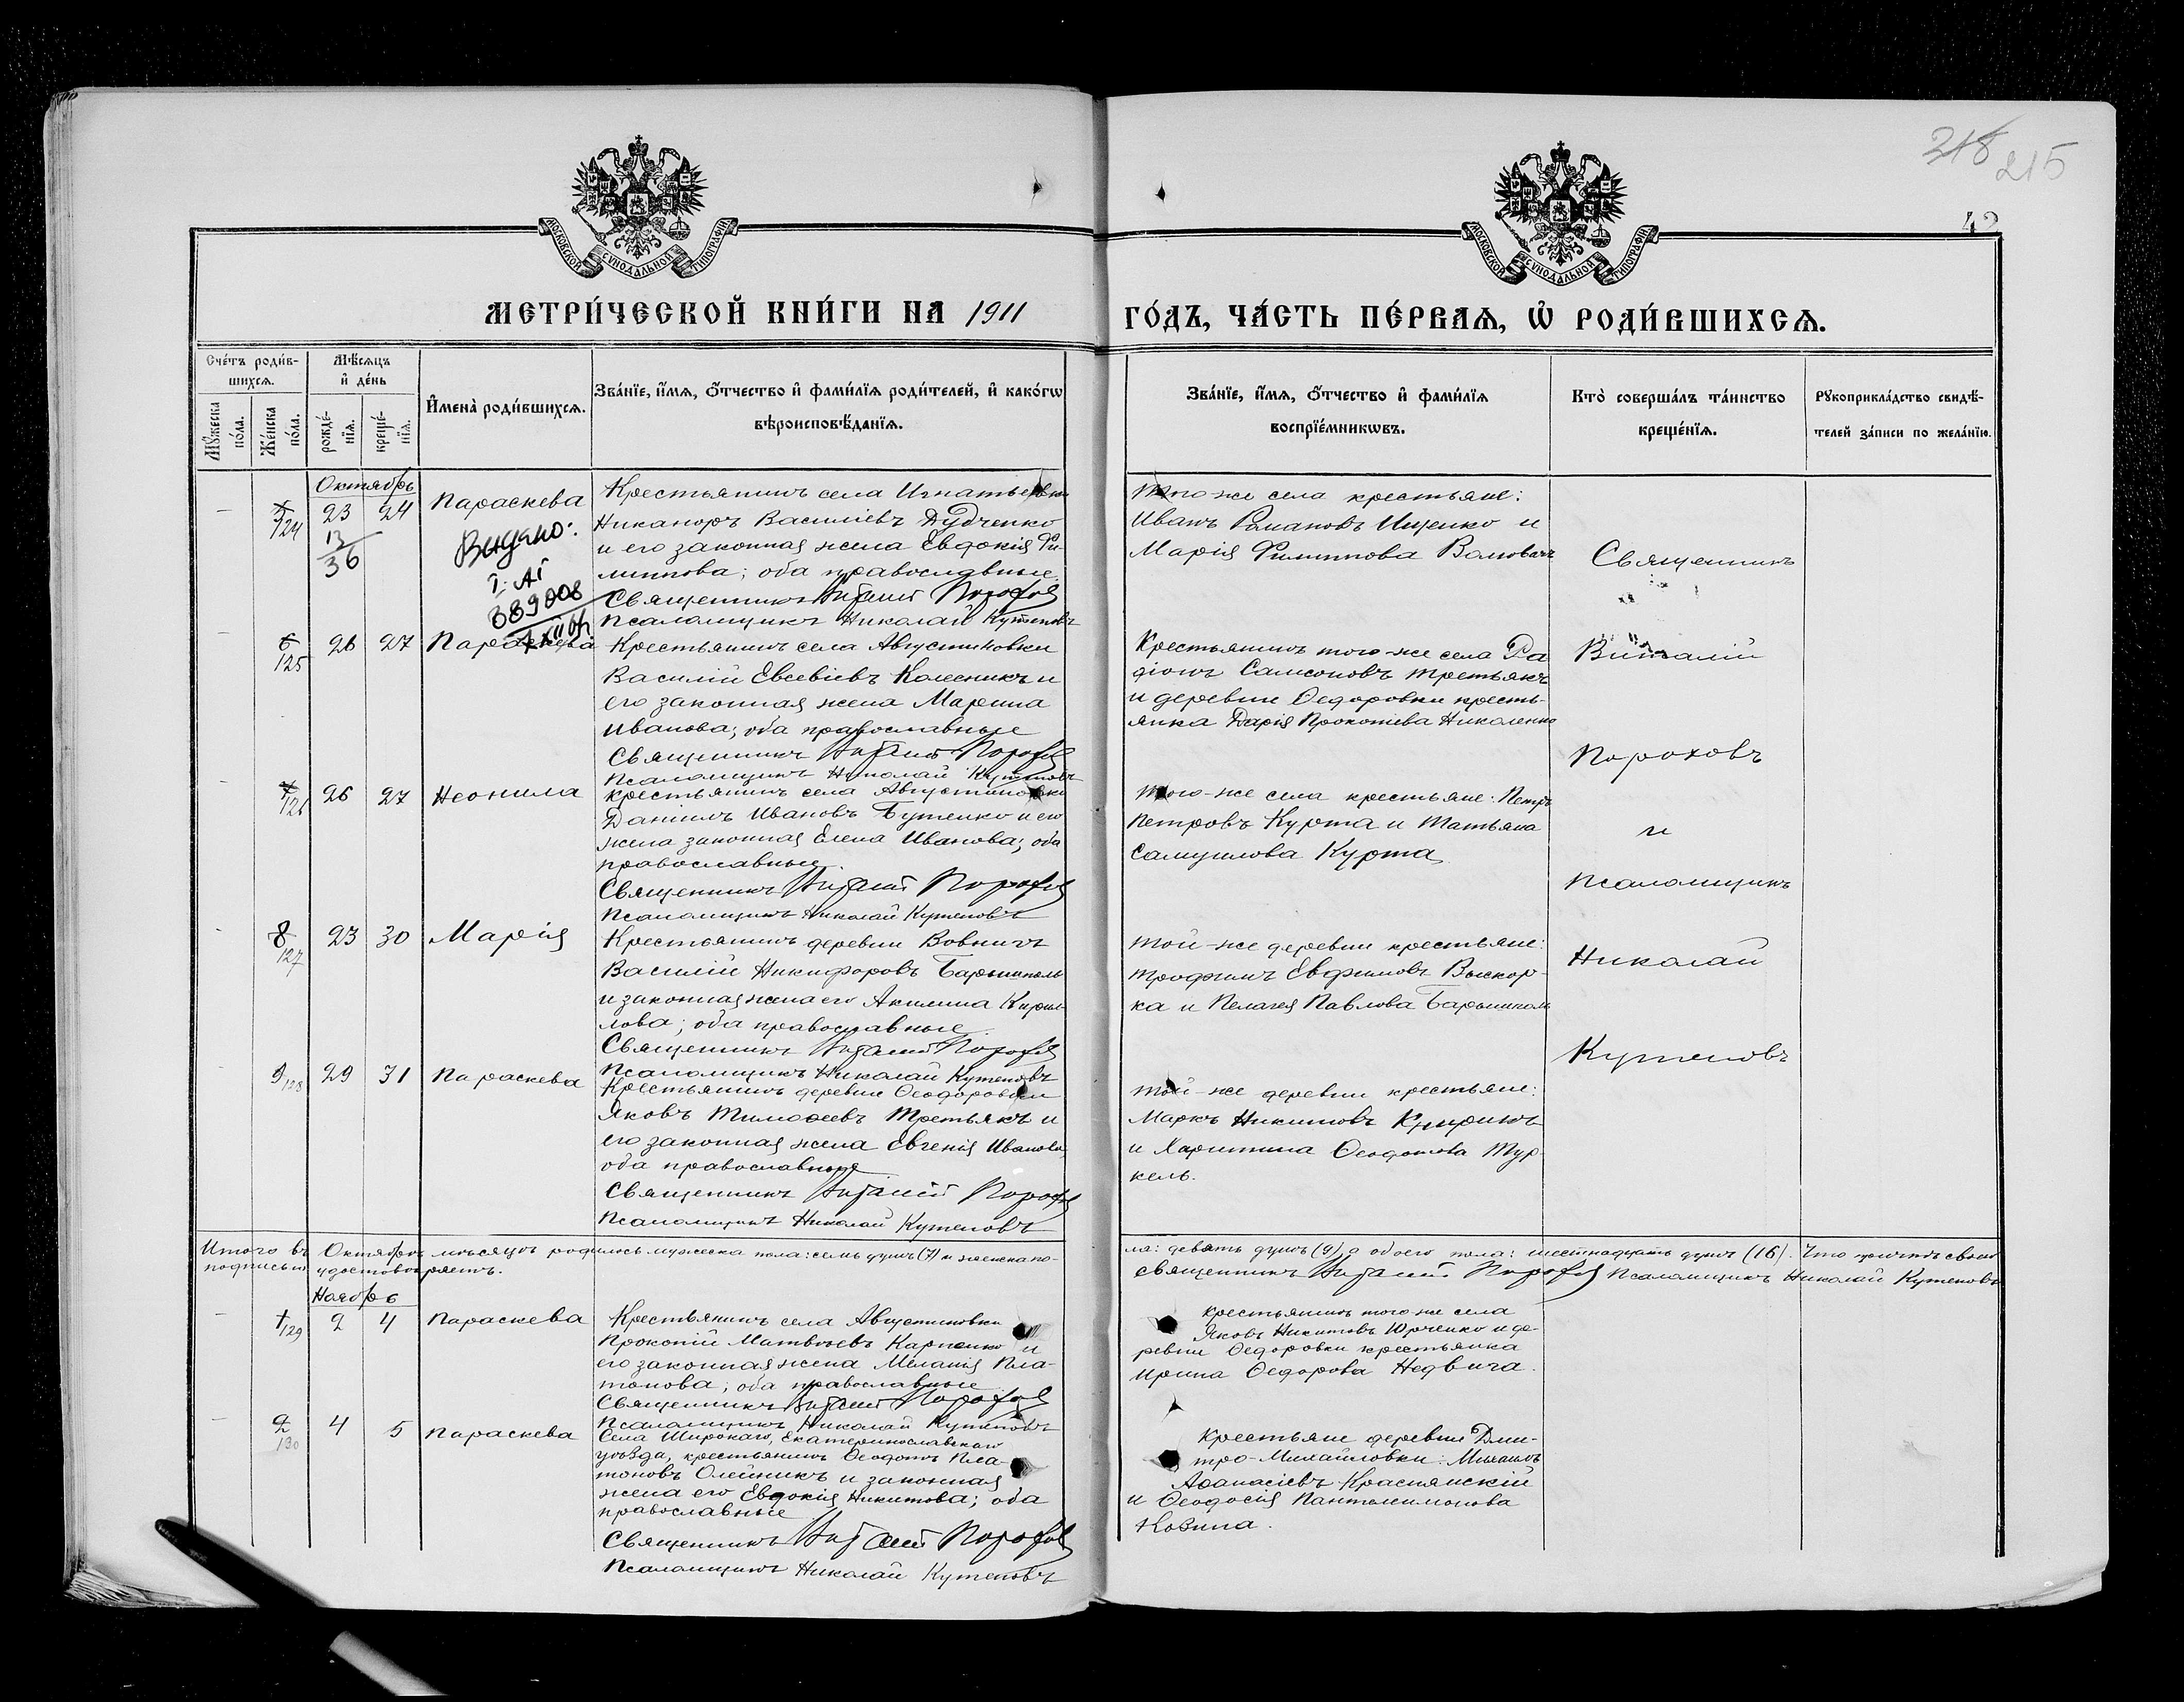 218 215
42
МОСКОВСКОЙ СѴНОДАЛЬНОЙ ТИПОГРАФІИ
МОСКОВСКОЙ СѴНОДАЛЬНОЙ ТИПОГРАФІИ
МЕТРИ́ЧЕСКОЙ КНИ́ГИ НА 1911
ГО́ДЪ, ЧА́СТЬ ПЕ́РВАѦ, Ѡ҆ РОДИ́ВШИХСѦ.
Сче́тъ роди́в-
шихсѧ.
Мѣ́сѧцъ
и҆ де́нь
Мꙋ́жеска по́ла.
Же́нска по́ла.
рожде́-нїѧ.
креще́-нїѧ.
И҆мена̀ роди́вшихсѧ.
Зва́нїе, и҆́мѧ, ѻ҆́тчество и҆ фами́лїѧ роди́телей, и҆ како́гѡ
вѣроисповѣ́данїѧ.
Зва́нїе, и҆́мѧ, ѻ҆́тчество и҆ фами́лїѧ
воспрїе́мникѡвъ.
Кто̀ соверша́лъ та́инство
креще́нїѧ.
Рꙋкоприкла́дство свидѣ́-
телей за́писи по жела́нїю.
Октябрь
- 5/124 23 24 Параскева
13/36
Выдано:
389008
Крестьянинъ села Игнатьевки
Никаноръ Василіевъ Дудченко
и его законная жена Евдокія Фи-
липпова; оба православные.
Священникъ Виталій Пороховъ
Псаломщикъ Николай Кутеповъ
Того-же села крестьяне:
Иванъ Романовъ Ищенко и
Марія Филиппова
Священникъ
- 6/125 26 27 Параскева
Крестьянинъ села Августиновки
Василій Евсевіевъ Колесникъ и
его законная жена Марина
Иванова; оба православные
Священникъ Виталій Пороховъ
Псаломщикъ Николай Кутеповъ
Крестьянинъ того-же села Ра
діонъ Самсоновъ Третьякъ
и деревни Ѳедоровки кресть-
янка Дарія Прокопіева Николенко
Виталій
Пороховъ
- 7/126 26 27 Неонила
Крестьянинъ села Августиновки
Даніилъ Ивановъ Бутенко и его
жена законная Елена Иванова; оба
православные.
Священникъ Виталій Пороховъ
Псаломщикъ Николай Кутеповъ
Того-же села крестьяне: Петръ
Петровъ Курта и Татьяна
Самуилова Курта
и
Псаломщикъ
- 8/127 23 30 Марія
Крестьянинъ деревни Вовнигъ
Василій Никифоровъ Барышполь
и законная жена его Акилина Кирил
лова; оба православные
Священникъ Виталій Пороховъ
Псаломщикъ Николай Кутеповъ
Той-же деревни крестьяне:
Трофимъ Евфимовъ Выскор-
ка и Пелагея Павлова Барышполь
Николай
Кутеповъ
9/128 29 31 Параскева
Крестьянинъ деревни Ѳеодоровки
Яковъ Тимоѳеевъ Третьякъ и
его законная жена Евгенія Иванова
оба православные
Священникъ Виталій Пороховъ
Псаломщикъ Николай Кутеповъ
Той-же деревни крестьяне:
Маркъ Никитовъ
и Харитина Ѳеодотова Тур-
кель.
Итого въ Октябрѣ мѣсяцѣ родилось мужеска пола: семь душъ (7) и женска по-
ла: девять душъ (9), а обоего пола: шестнадцать душъ (16). Что причтъ своею
подписью удостовѣряетъ.
Священникъ Виталій Пороховъ Псаломщикъ Николай Кутеповъ
Ноябрь
- 1/129 2 4 Параскева
Крестьянинъ села Августиновки
Прокопій Матвѣевъ Карпенко и
его законная жена Меланія Пла-
тонова; оба православные
Священникъ Виталій Пороховъ
Псаломщикъ Николай Кутеповъ
Крестьянинъ того-же села
Яковъ Никитовъ Юрченко и де-
ревни Ѳедоровки крестьянка
Ирина Ѳедорова Недвига.
- 2/130 4 5 Параскева
Села Широкаго, Екатеринославскаго
уѣзда, крестьянинъ Ѳеодотъ Пла-
тоновъ Олейникъ и законная
жена его Евдокія Никитова; оба
православные
Священникъ Виталій Пороховъ
Псаломщикъ Николай Кутеповъ
Крестьяне деревни Дми-
тро-Михайловки: Михаилъ
Аѳанасіевъ Краснянскій
и Ѳеодосія Пантелимонова
Козина.